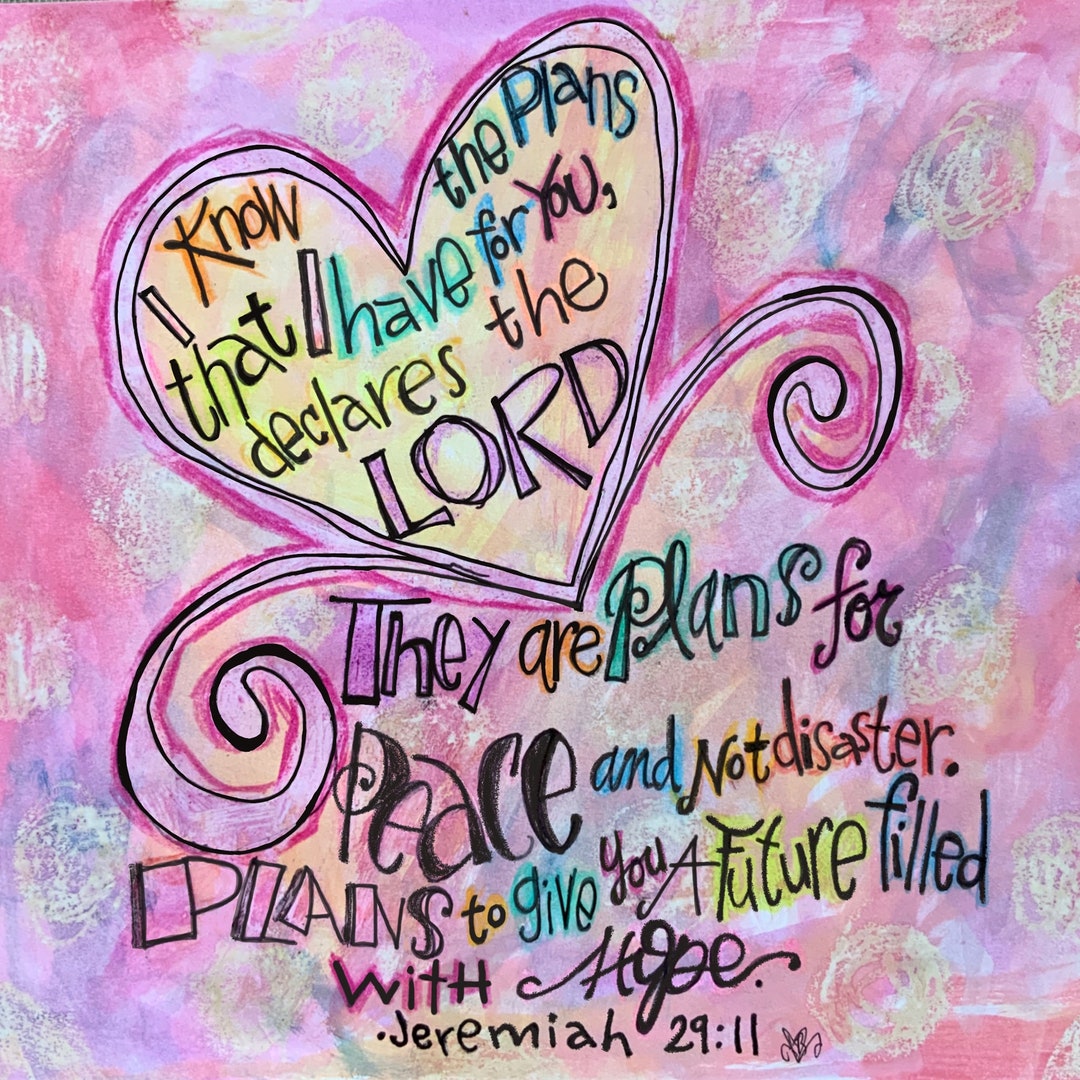 I Know the Plans
that I have for You,
declares the
LORD
They are Plans for
Peace and Not disaster.
PLANS to give you A Future filled
with Hope.
.Jeremiah 29:11